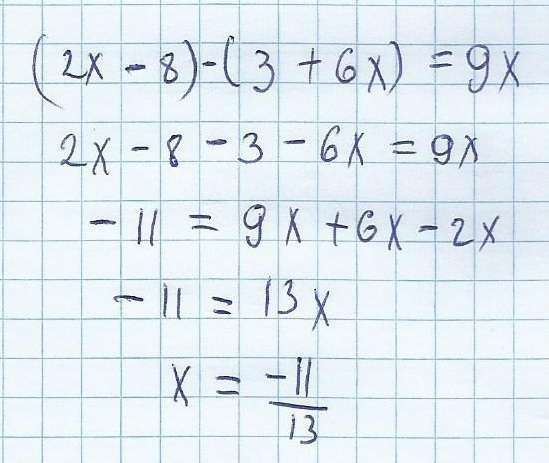 (2x - 8)-(3 + 6x) = 9x
2x - 8 - 3 - 6x = 9x
- 11 = 9x + 6x - 2x
- 11 = 13x
x = -11/13